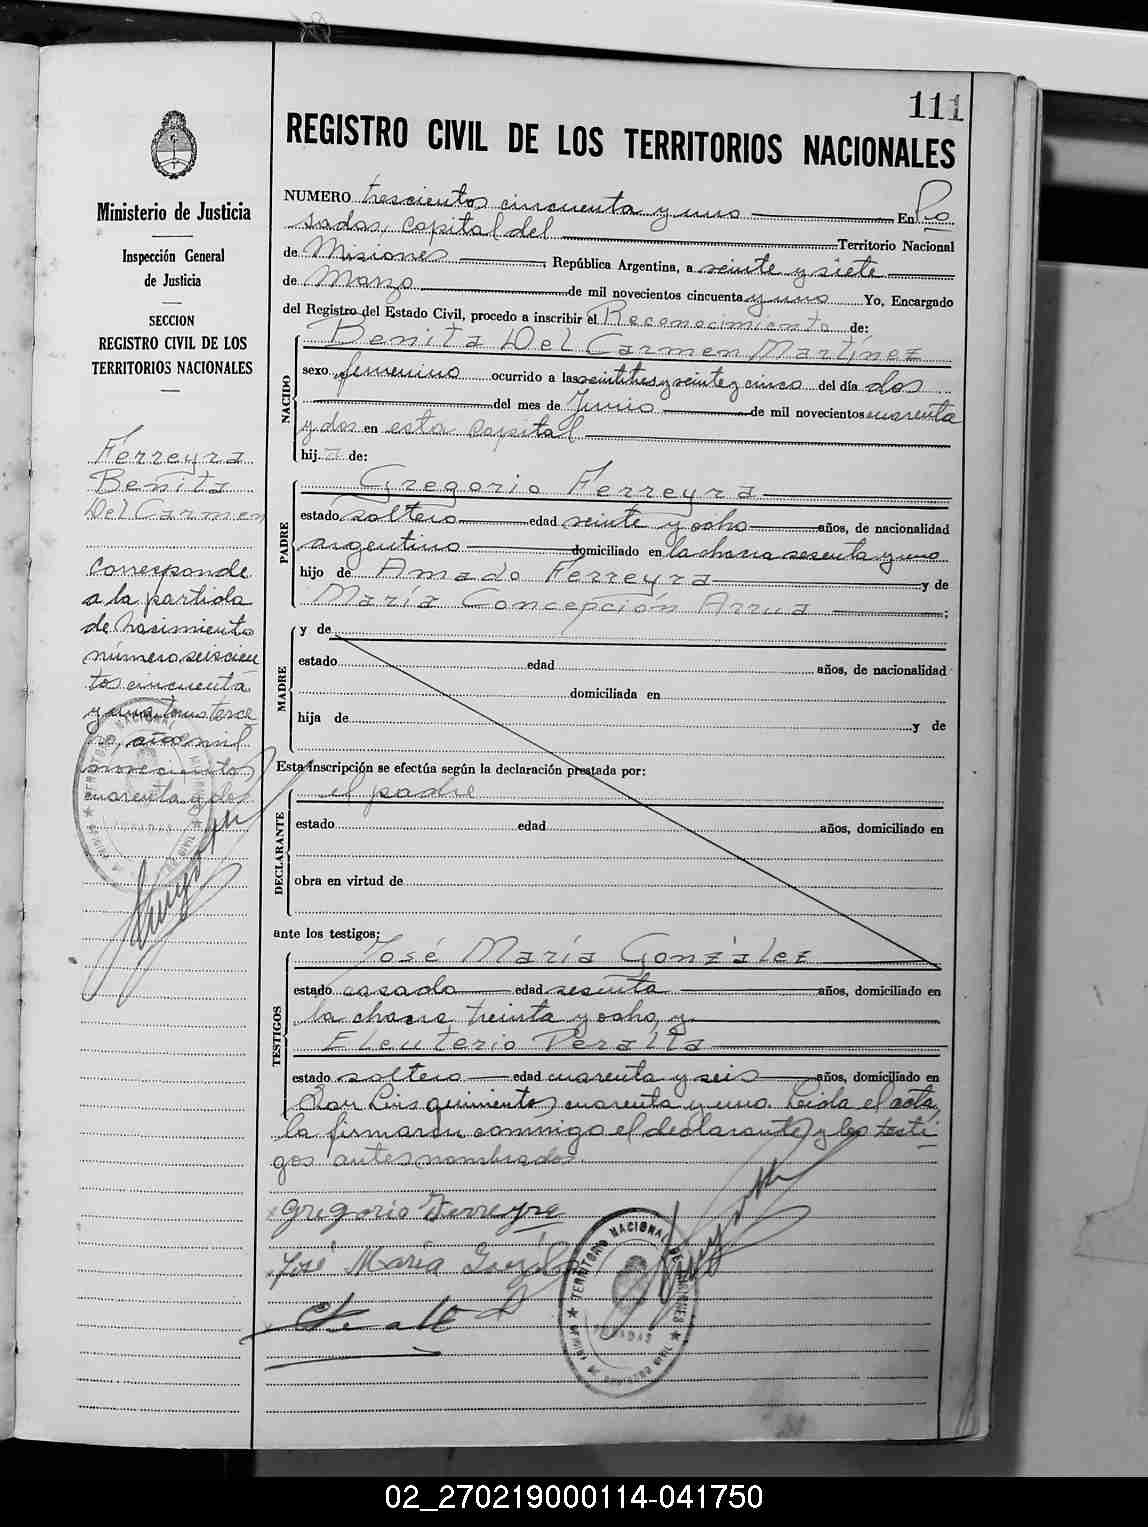 111
REGISTRO CIVIL DE LOS TERRITORIOS NACIONALES
Ministerio de Justicia
Inspección General
de Justicia
SECCION
REGISTRO CIVIL DE LOS
TERRITORIOS NACIONALES
Ferreyra
Benita
Del Carmen
Corresponde
a la partida
de nacimiento
número seiscien
tos cincuenta
y uno, tomo terce
ro, año mil
novecientos
cuarenta y dos
NUMERO trescientos cincuenta y uno En Po
sadas, capital del Territorio Nacional
de Misiones, República Argentina, a veinte y siete
de Marzo de mil novecientos cincuenta y uno Yo, Encargado
del Registro del Estado Civil, procedo a inscribir el Reconocimiento de:
NACIDO
Benita Del Carmen Martínez
sexo femenino ocurrido a las veintitres y veinte y cinco del día dos
del mes de Junio de mil novecientos cuarenta
y dos en esta capital
hija de:
PADRE
Gregorio Ferreyra
estado soltero edad veinte y ocho años, de nacionalidad
argentino domiciliado en la chacra sesenta y uno
hijo de Amado Ferreyra y de
María Concepción Arrua ;
MADRE
y de
estado edad años, de nacionalidad
domiciliada en
hija de y de
Esta inscripción se efectúa según la declaración prestada por:
DECLARANTE
el padre
estado edad años, domiciliado en
obra en virtud de
ante los testigos:
TESTIGOS
José María González
estado casado edad sesenta años, domiciliado en
la chacra treinta y ocho, y
Eleuterio Peralta
estado soltero edad cuarenta y seis años, domiciliado en
San Luis quinientos cuarenta y uno. Leida el acta,
la firmaron conmigo el declarante y los testi
gos antes nombrados.
Gregorio Ferreyra
José María González
TERRITORIO NACIONAL DE MISIONES
02_270219000114-041750